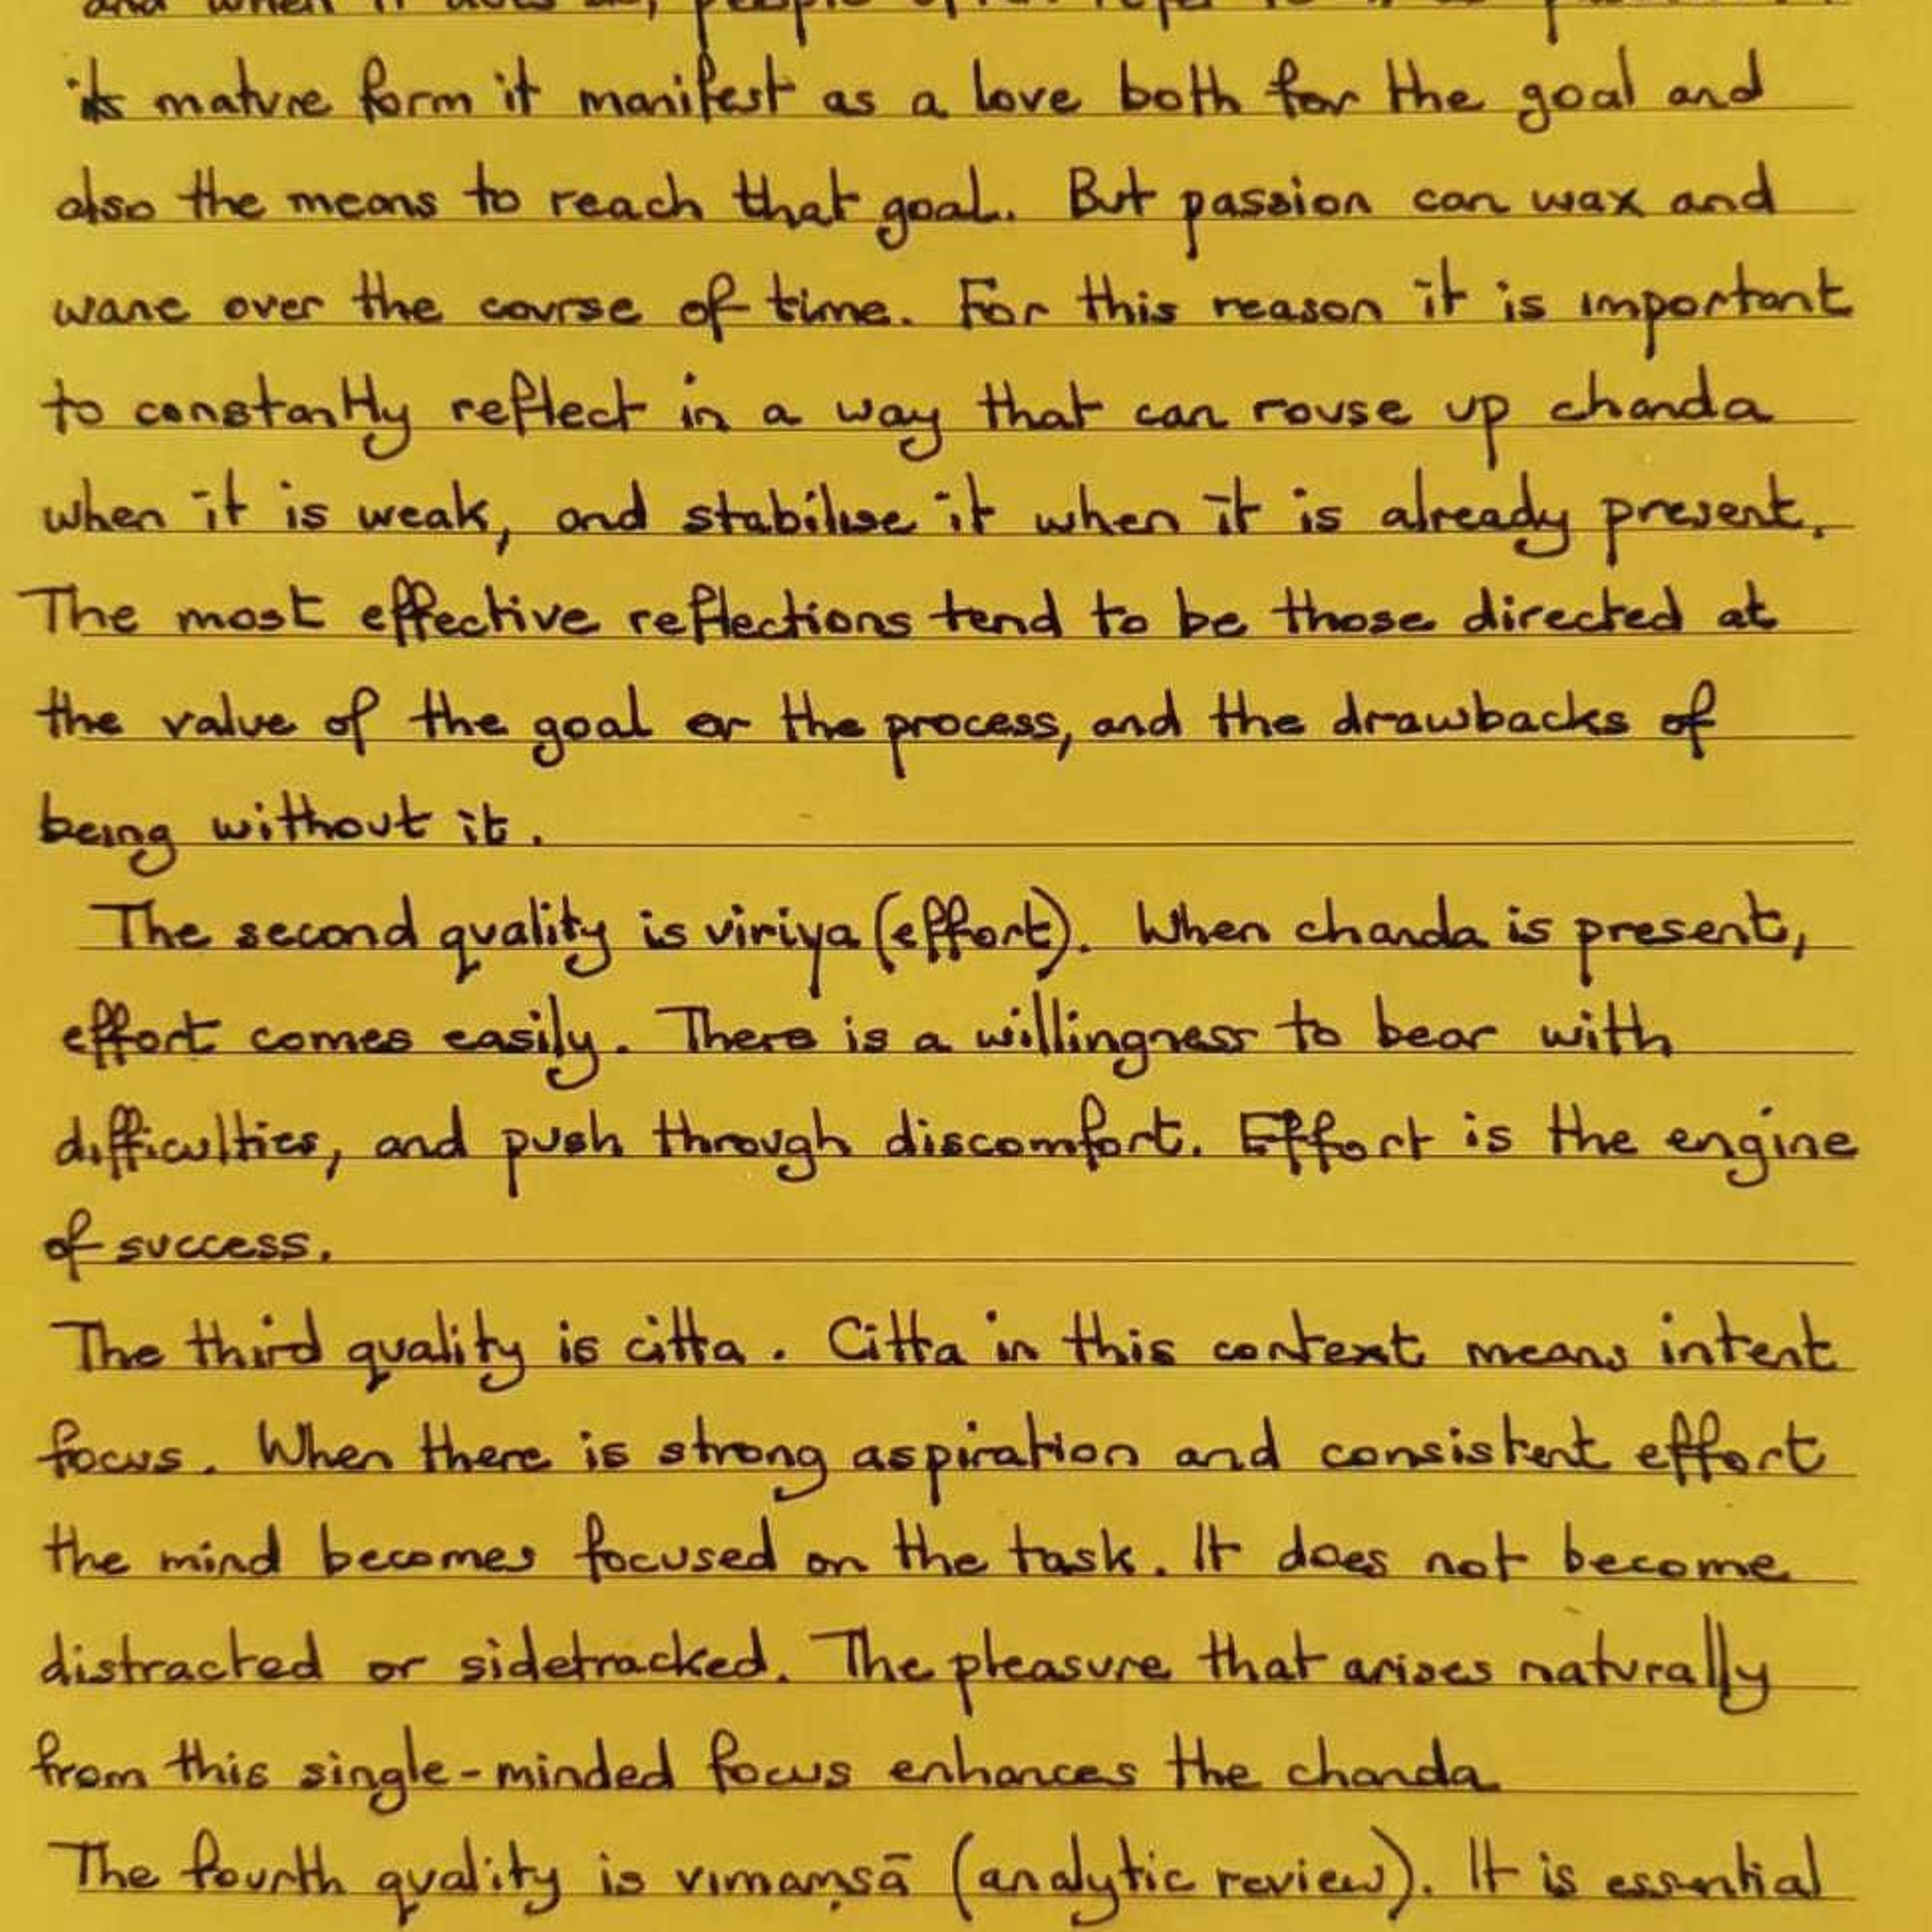 and when it does so, people often refer to it as
its mature form it manifest as a love both for the goal and
also the means to reach that goal. But passion can wax and
wane over the course of time. For this reason it is important
to constantly reflect in a way that can rouse up chanda
when it is weak, and stabilise it when it is already present.
The most effective reflections tend to be those directed at
the value of the goal or the process, and the drawbacks of
being without it.
The second quality is viriya (effort). When chanda is present,
effort comes easily. There is a willingness to bear with
difficulties, and push through discomfort. Effort is the engine
of success.
The third quality is citta. Citta in this context means intent
focus. When there is strong aspiration and consistent effort
the mind becomes focused on the task. It does not become
distracted or sidetracked. The pleasure that arises naturally
from this single-minded focus enhances the chanda
The fourth quality is vimaṃsā (analytic review). It is essential